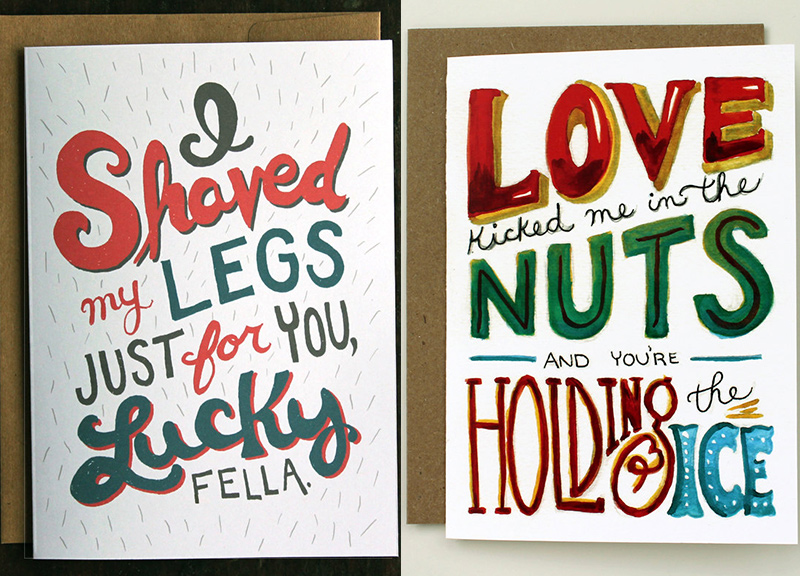 I
Shaved
my LEGS
JUST for YOU,
Lucky
FELLA.
LOVE
kicked me in the
NUTS
AND YOU'RE
HOLDING the
ICE